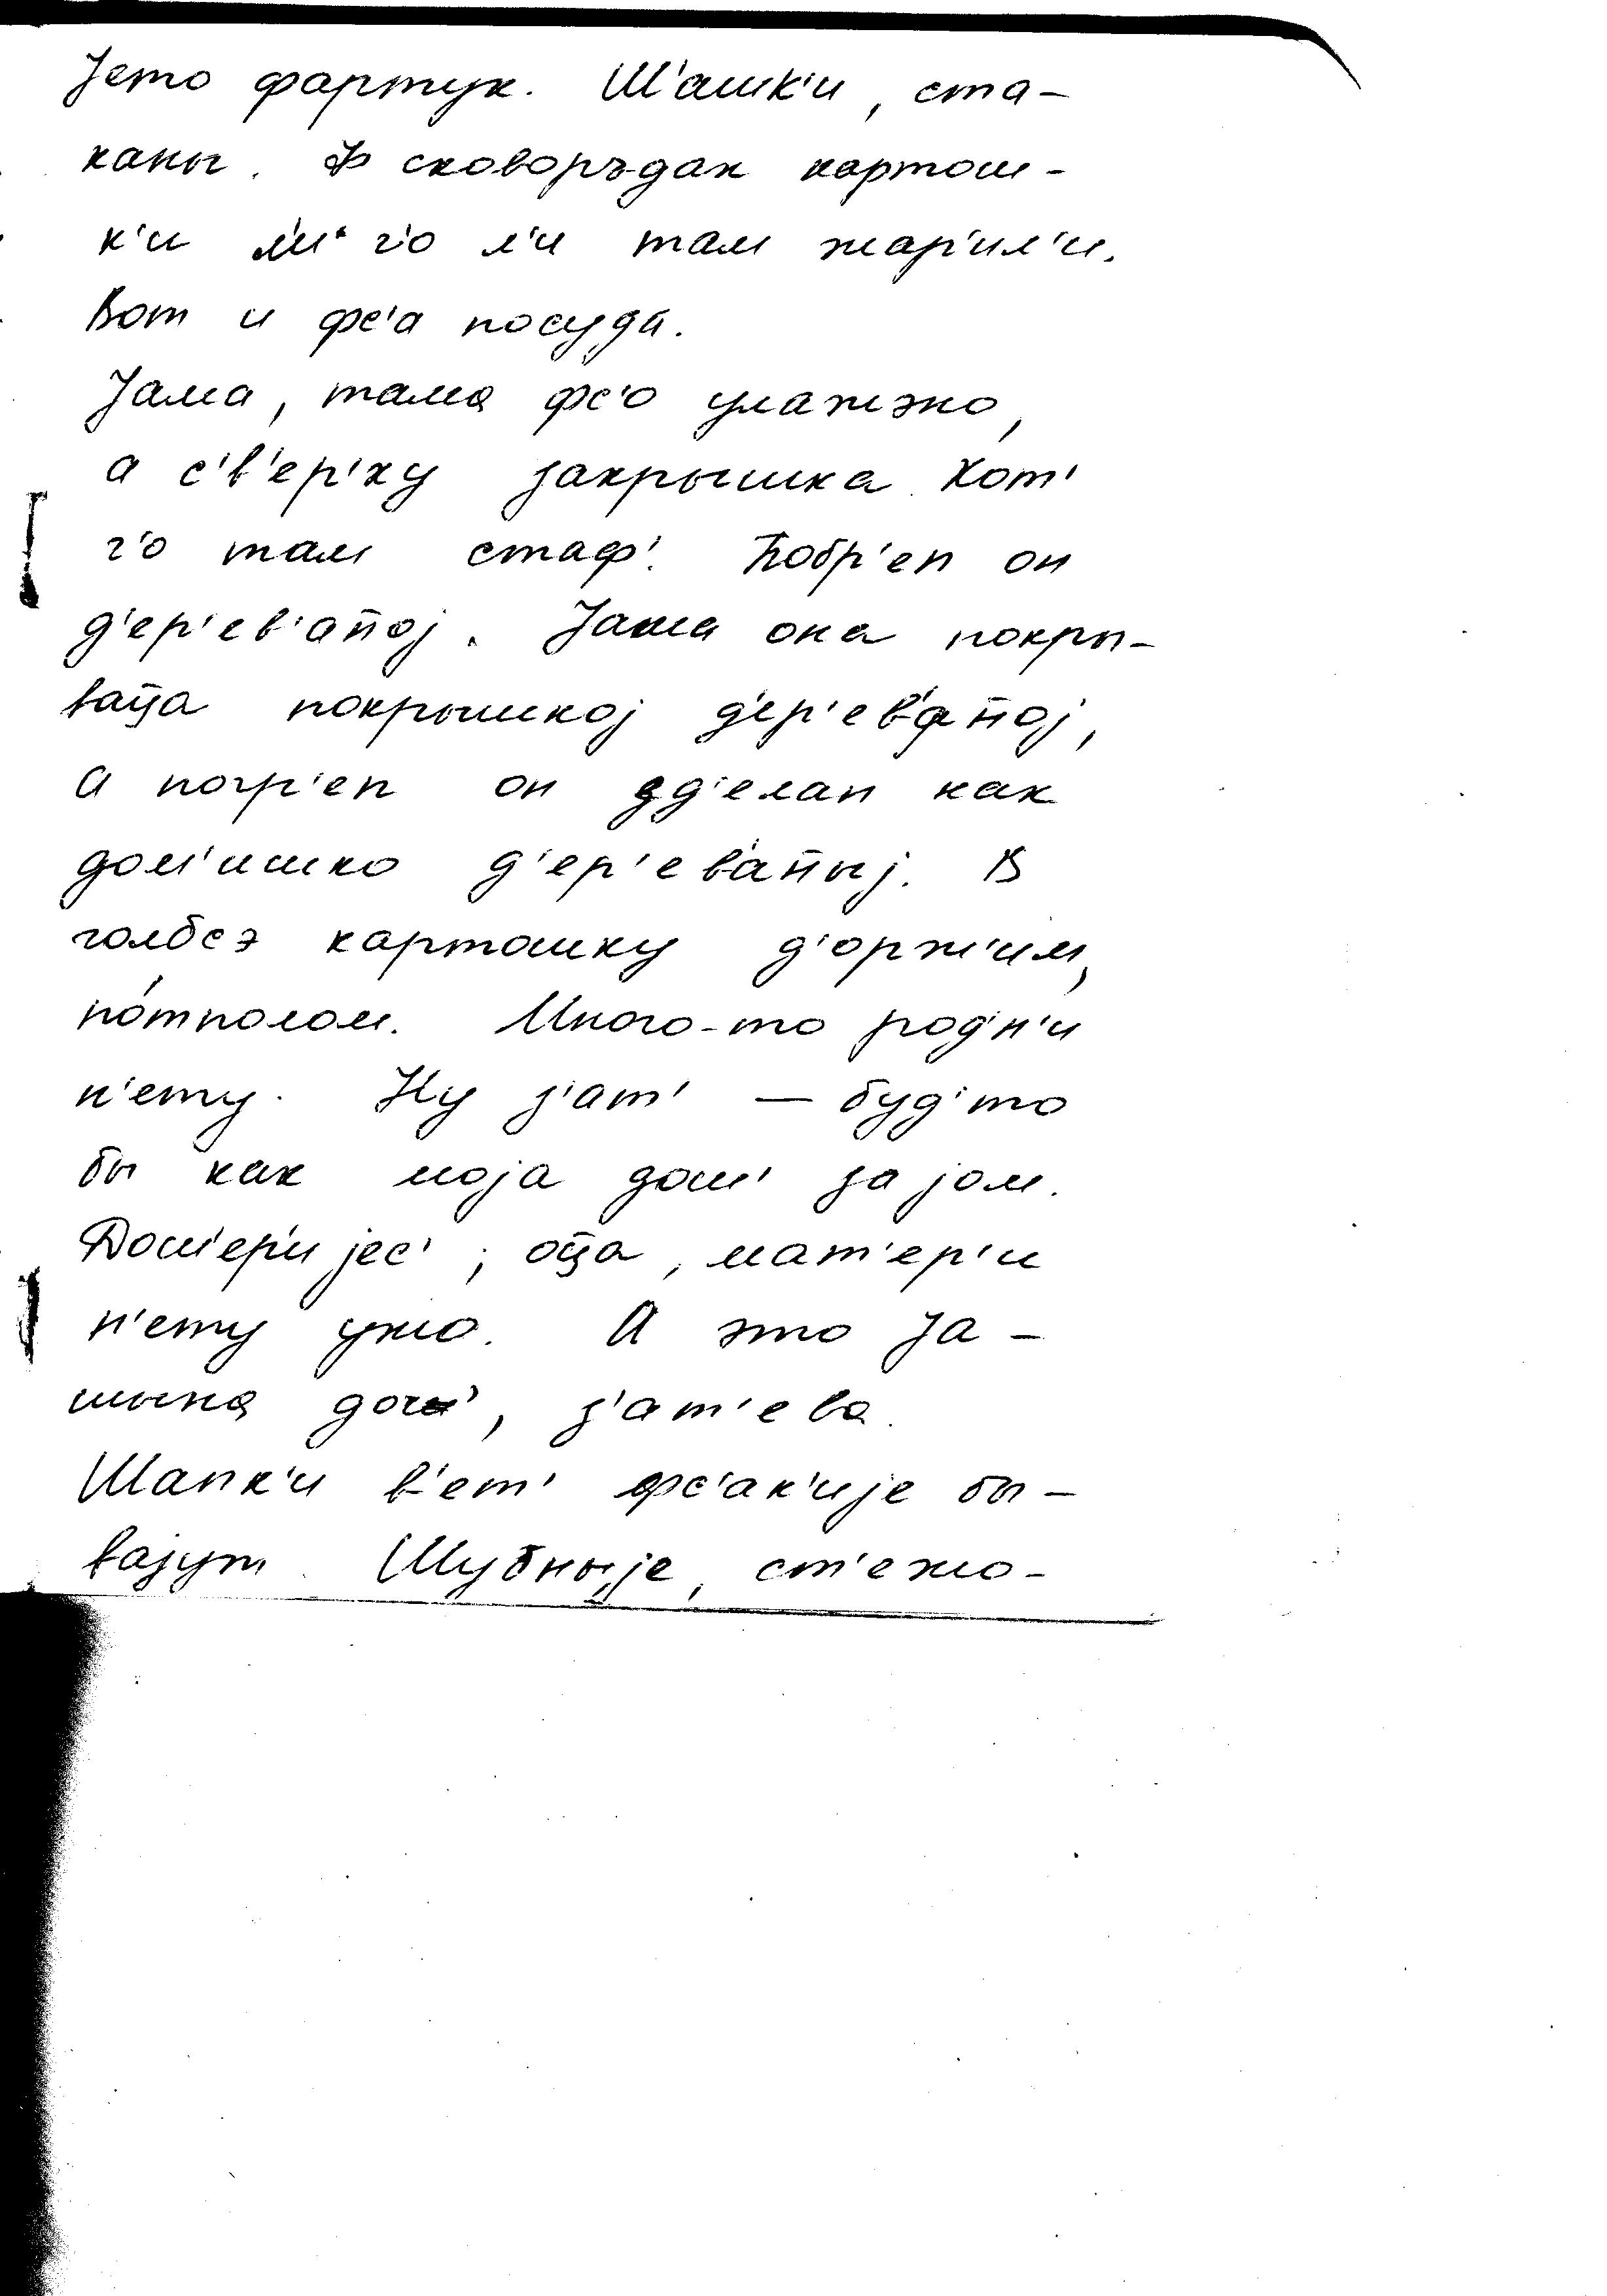 Јето фартук. Ш'ашк'и, ста-
каны. Ф сковоръдах картош-
к'и л'и г'о л'и там жар'ил'и.
Вот и фс'а посуда.
Јама, тама фс'о улажэно,
а с'в'ер'ху закрышка. Хот'
г'о там стаф'.  он
д'ер'ев'ан̄ој. Јама она покры-
вац̄а покрышкој д'ер'ев'ан̄ој,
а погр'еп он зд'елан как
дом'ишко д'ер'ев'ан̄ыј. В
голбсэ картошку д'орж'им,
по́тполом. Много-то родн'и
н'ету. Ну з'ат' — буд'то
бы как моја дош' за јом.
Дош'ер'и јес'; оц̄а, мат'ер'и
н'ету ужо. А это Ја-
шына доч', з'ат'ева.
Шапк'и в'ет' фс'ак'ије бы-
вајут. Шубныје, ст'ежо-